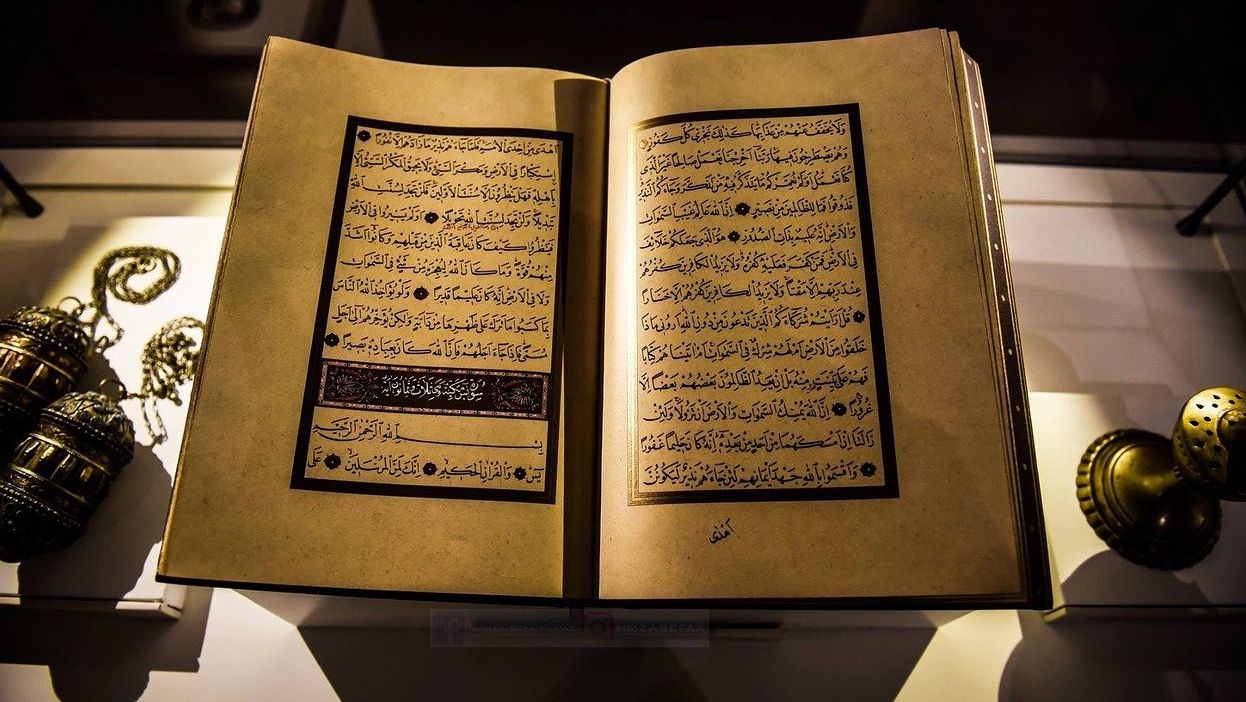 وَلَا يُخَفَّفُ عَنْهُمْ مِنْ عَذَابِهَا كَذٰلِكَ نَجْزِي كُلَّ كَفُورٍ
وَهُمْ يَصْطَرِخُونَ فِيهَا رَبَّنَا اَخْرِجْنَا نَعْمَلْ صَالِحًا غَيْرَ الَّذِي
كُنَّا نَعْمَلُ اَوَلَمْ نُعَمِّرْكُمْ مَا يَتَذَكَّرُ فِيهِ مَنْ تَذَكَّرَ وَجَاءَكُمُ النَّذِيرُ
فَذُوقُوا فَمَا لِلظَّالِمِينَ مِنْ نَصِيرٍ اِنَّ اللّٰهَ عَالِمُ غَيْبِ السَّمٰوَاتِ
وَالْاَرْضِ اِنَّهُ عَلِيمٌ بِذَاتِ الصُّدُورِ هُوَ الَّذِي جَعَلَكُمْ خَلَائِفَ
فِي الْاَرْضِ فَمَنْ كَفَرَ فَعَلَيْهِ كُفْرُهُ وَلَا يَزِيدُ الْكَافِرِينَ كُفْرُهُمْ
عِنْدَ رَبِّهِمْ اِلَّا مَقْتًا وَلَا يَزِيدُ الْكَافِرِينَ كُفْرُهُمْ اِلَّا خَسَارًا
قُلْ اَرَاَيْتُمْ شُرَكَاءَكُمُ الَّذِينَ تَدْعُونَ مِنْ دُونِ اللّٰهِ اَرُونِي مَاذَا
خَلَقُوا مِنَ الْاَرْضِ اَمْ لَهُمْ شِرْكٌ فِي السَّمٰوَاتِ اَمْ اٰتَيْنَاهُمْ كِتَابًا
فَهُمْ عَلٰى بَيِّنَتٍ مِنْهُ بَلْ اِنْ يَعِدُ الظَّالِمُونَ بَعْضُهُمْ بَعْضًا اِلَّا
غُرُورًا اِنَّ اللّٰهَ يُمْسِكُ السَّمٰوَاتِ وَالْاَرْضَ اَنْ تَزُولَا وَلَئِنْ
زَالَتَا اِنْ اَمْسَكَهُمَا مِنْ اَحَدٍ مِنْ بَعْدِهِ اِنَّهُ كَانَ حَلِيمًا غَفُورًا
وَاَقْسَمُوا بِاللّٰهِ جَهْدَ اَيْمَانِهِمْ لَئِنْ جَاءَهُمْ نَذِيرٌ لَيَكُونُنَّ
اَهْدٰى
اَهْدٰى مِنْ اِحْدَى الْاُمَمِ فَلَمَّا جَاءَهُمْ نَذِيرٌ مَا زَادَهُمْ اِلَّا نُفُورًا
اِسْتِكْبَارًا فِي الْاَرْضِ وَمَكْرَ السَّيِّئِ وَلَا يَحِيقُ الْمَكْرُ السَّيِّئُ اِلَّا
بِاَهْلِهِ فَهَلْ يَنْظُرُونَ اِلَّا سُنَّتَ الْاَوَّلِينَ فَلَنْ تَجِدَ لِسُنَّتِ اللّٰهِ
تَبْدِيلًا وَلَنْ تَجِدَ لِسُنَّتِ اللّٰهِ تَحْوِيلًا اَوَلَمْ يَسِيرُوا فِي الْاَرْضِ
فَيَنْظُرُوا كَيْفَ كَانَ عَاقِبَةُ الَّذِينَ مِنْ قَبْلِهِمْ وَكَانُوا اَشَدَّ
مِنْهُمْ قُوَّةً وَمَا كَانَ اللّٰهُ لِيُعْجِزَهُ مِنْ شَيْءٍ فِي السَّمٰوَاتِ
وَلَا فِي الْاَرْضِ اِنَّهُ كَانَ عَلِيمًا قَدِيرًا وَلَوْ يُؤَاخِذُ اللّٰهُ النَّاسَ
بِمَا كَسَبُوا مَا تَرَكَ عَلٰى ظَهْرِهَا مِنْ دَابَّةٍ وَلٰكِنْ يُؤَخِّرُهُمْ اِلٰى اَجَلٍ
مُسَمًّى فَاِذَا جَاءَ اَجَلُهُمْ فَاِنَّ اللّٰهَ كَانَ بِعِبَادِهِ بَصِيرًا
سورة يس مكية ثلاث وثمانون آية
بِسْمِ اللّٰهِ الرَّحْمٰنِ الرَّحِيمِ
يٰسٓ وَالْقُرْاٰنِ الْحَكِيمِ اِنَّكَ لَمِنَ الْمُرْسَلِينَ عَلٰى
HMZASEFAA